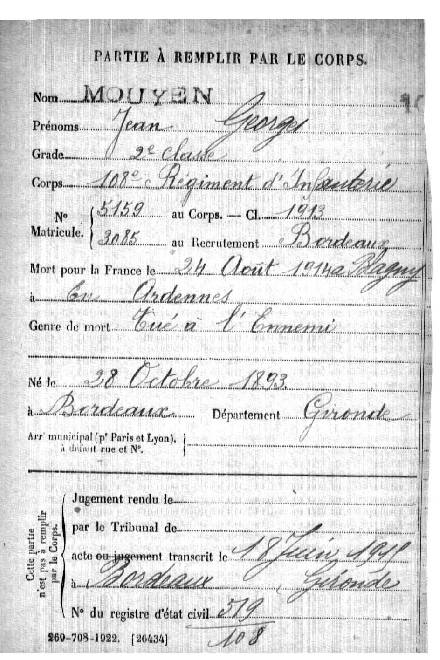 PARTIE À REMPLIR PAR LE CORPS.
Nom MOUYEN
Prénoms Jean Georges
Grade 2e classe
Corps 108e Régiment d'Infanterie
No Matricule. 5159 au Corps. — Cl. 1913
3085 au Recrutement Bordeaux
Mort pour la France le 24 Août 1914 à Blagny
à En Ardennes
Genre de mort Tué à l'Ennemi
Né le 28 Octobre 1893
à Bordeaux Département Gironde
Arrt municipal (pr Paris et Lyon),
à défaut rue et No.
Cette partie n'est pas à remplir par le Corps.
Jugement rendu le
par le Tribunal de
acte ou jugement transcrit le 18 Juin
à Bordeaux Gironde
No du registre d'état civil 519
108
269-708-1922. [26434]